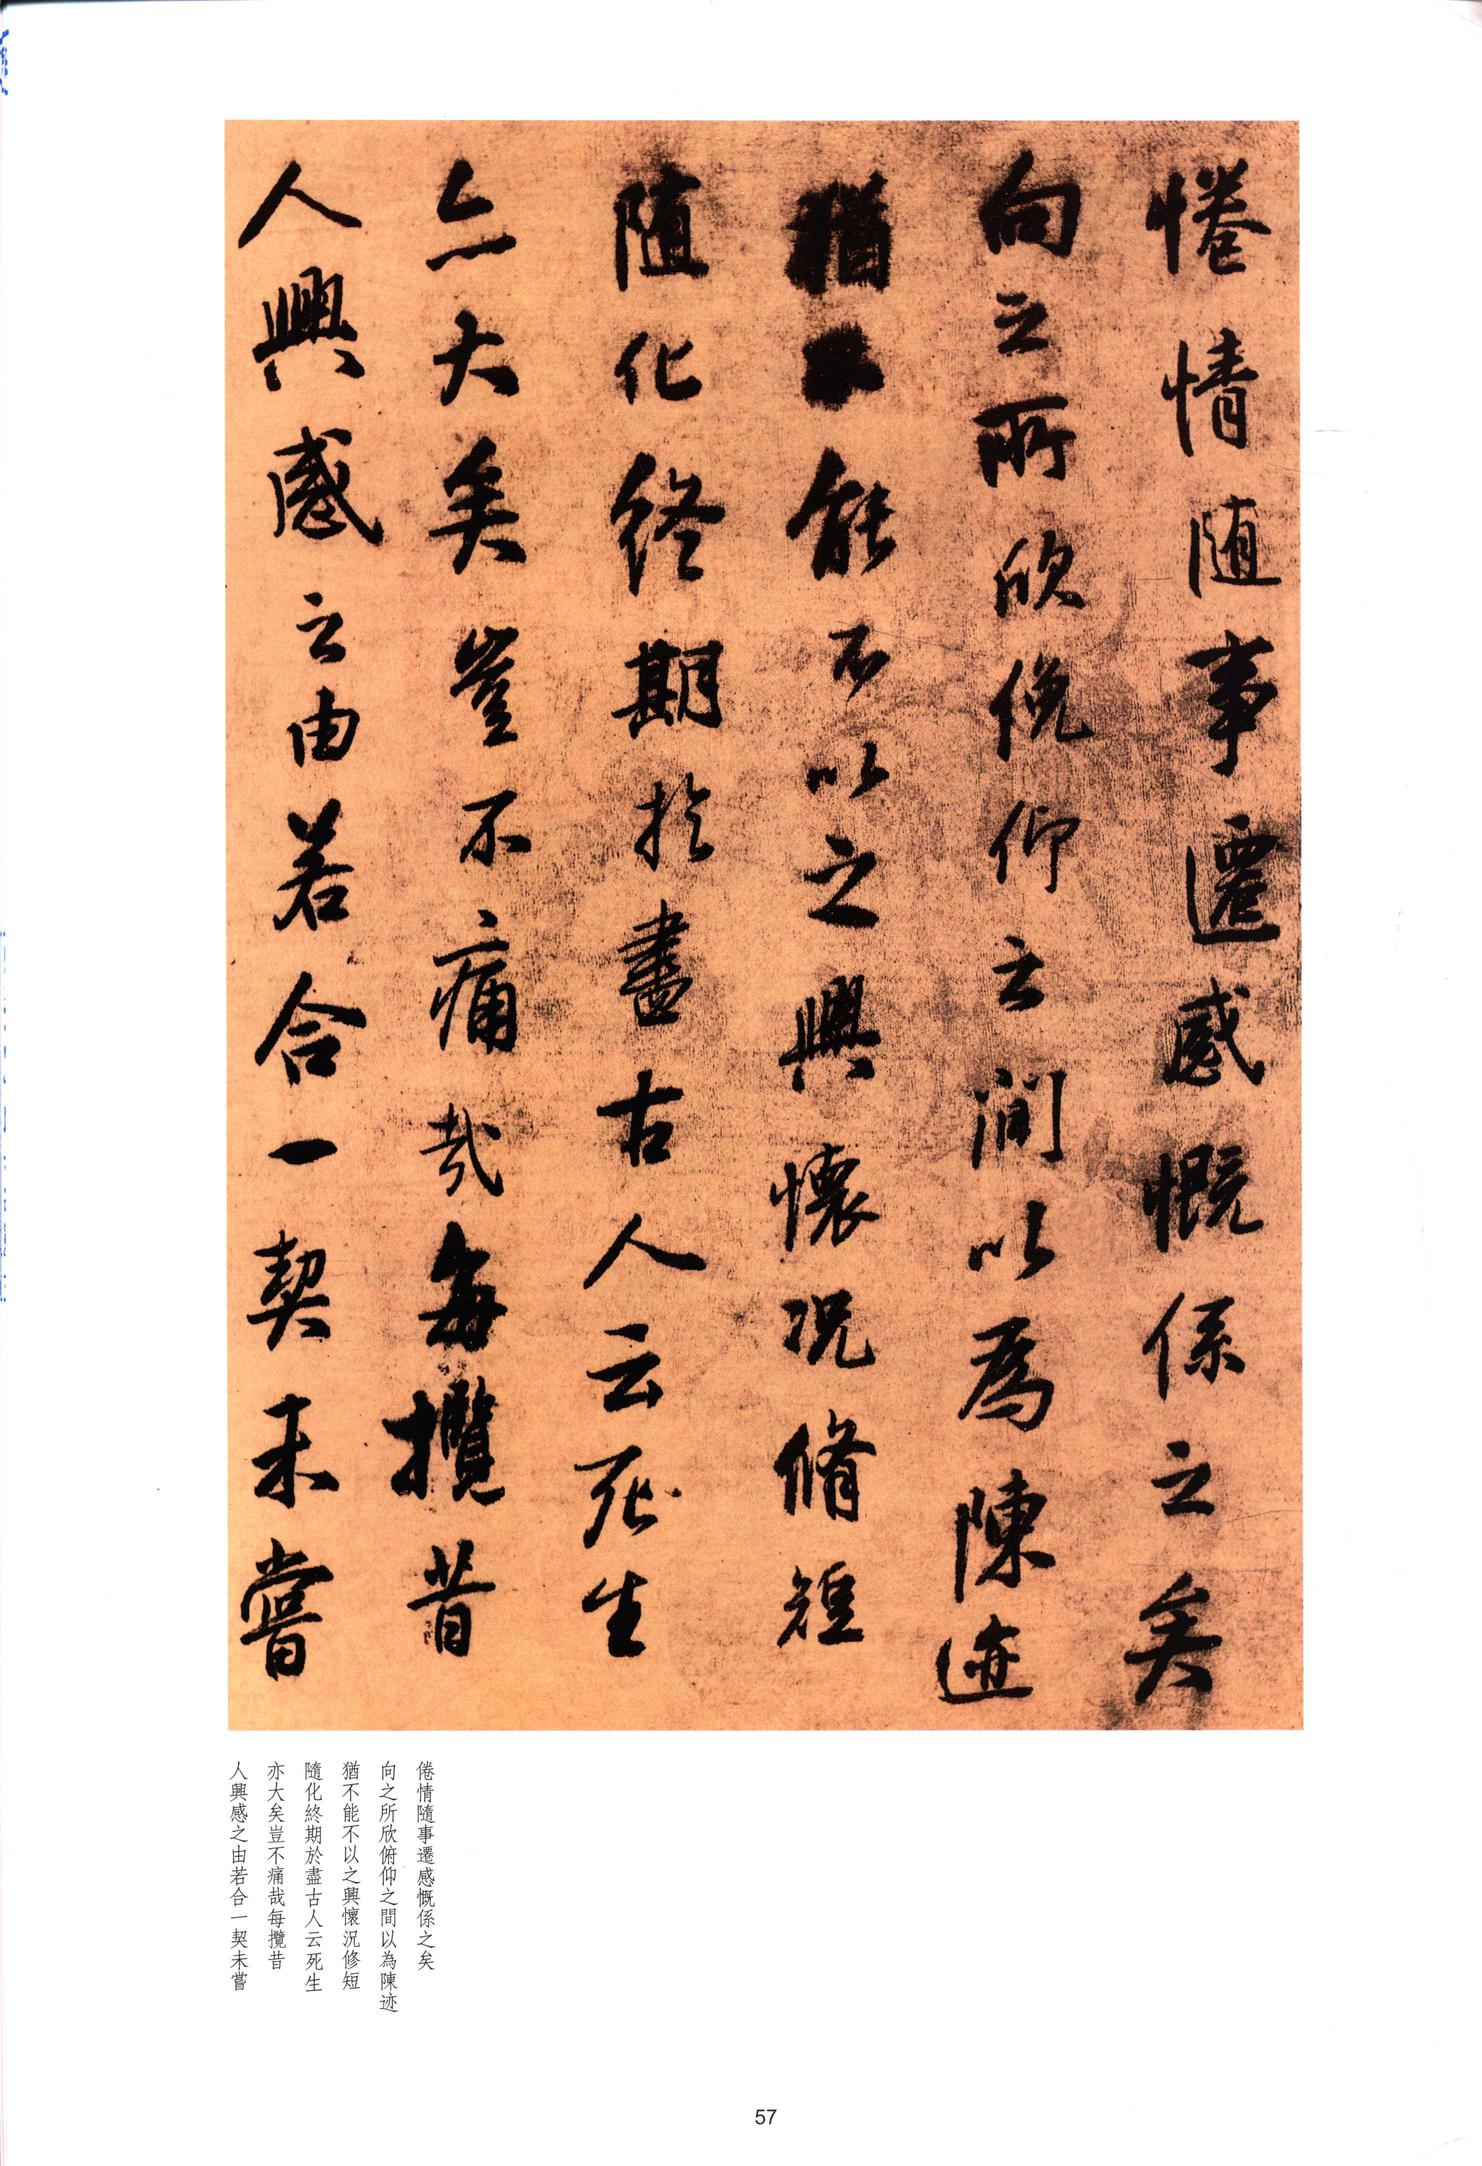 惓情随事遷感慨係之矣
向之所欣俛仰之間以為陳迹
猶不能不以之興懷况脩短
随化終期於盡古人云死生
亦大矣豈不痛哉每攬昔
人興感之由若合一契未嘗
倦情隨事遷感慨係之矣
向之所欣俯仰之間以為陳迹
猶不能不以之興懷況修短
隨化終期於盡古人云死生
亦大矣豈不痛哉每攬昔
人興感之由若合一契未嘗
57